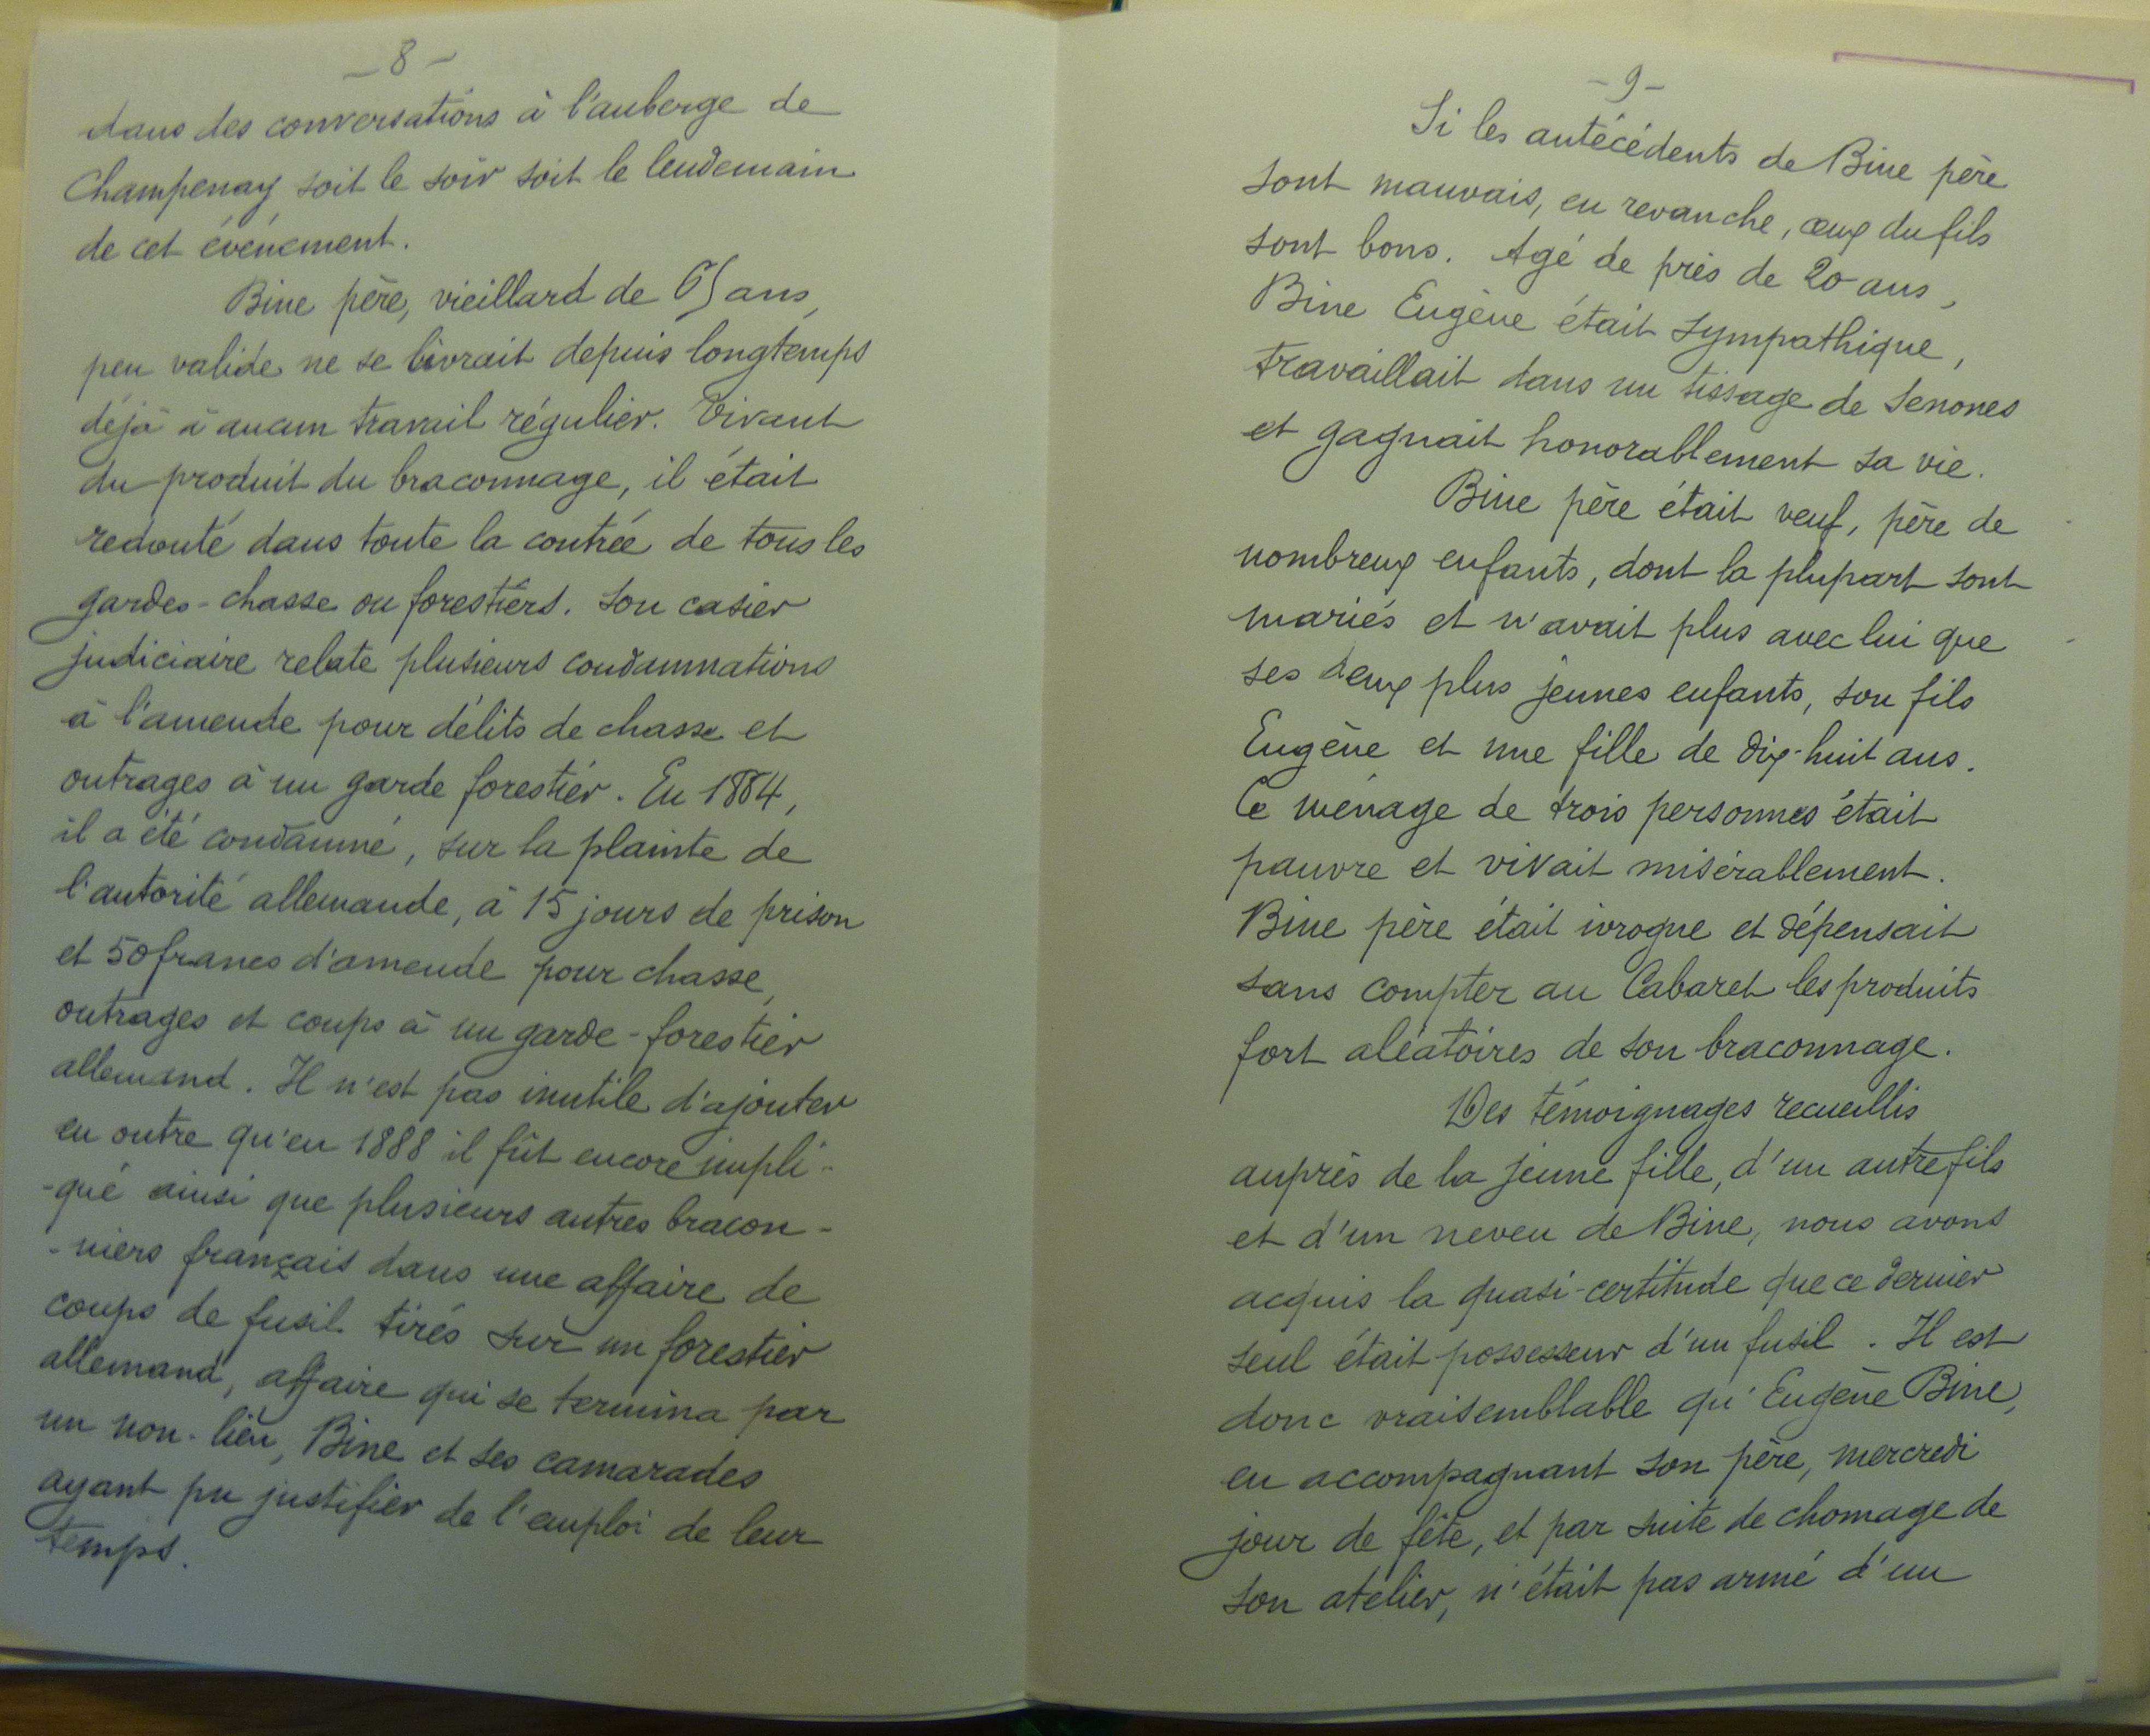 - 8 -
dans des conversations à l'auberge de
Champenay soit le soir soit le lendemain
de cet événement.
Bine père, vieillard de 65 ans,
peu valide ne se livrait depuis longtemps
déjà à aucun travail régulier. Vivant
du produit du braconnage, il était
redouté dans toute la contrée de tous les
gardes-chasse ou forestiers. Son casier
judiciaire relate plusieurs condamnations
à l'amende pour délits de chasse et
outrages à un garde forestier. En 1884,
il a été condamné, sur la plainte de
l'autorité allemande, à 15 jours de prison
et 50 francs d'amende pour chasse,
outrages et coups à un garde-forestier
allemand. Il n'est pas inutile d'ajouter
en outre qu'en 1888 il fût encore impli-
-qué ainsi que plusieurs autres bracon-
-niers français dans une affaire de
coups de fusil tirés sur un forestier
allemand, affaire qui se termina par
un non-lieu, Bine et ses camarades
ayant pu justifier de l'emploi de leur
temps.
- 9 -
Si les antécédents de Bine père
sont mauvais, en revanche, ceux du fils
sont bons. Agé de près de 20 ans,
Bine Eugène était sympathique,
travaillait dans un tissage de Senones
et gagnait honorablement sa vie.
Bine père était veuf, père de
nombreux enfants, dont la plupart sont
mariés et n'avait plus avec lui que
ses deux plus jeunes enfants, son fils
Eugène et une fille de dix-huit ans.
Ce ménage de trois personnes était
pauvre et vivait misérablement.
Bine père était ivrogne et dépensait
sans compter au Cabaret les produits
fort aléatoires de son braconnage.
Des témoignages recueillis
auprès de la jeune fille, d'un autre fils
et d'un neveu de Bine, nous avons
acquis la quasi-certitude que ce dernier
seul était possesseur d'un fusil. Il est
donc vraisemblable qu'Eugène Bine,
en accompagnant son père, mercredi
jour de fête, et par suite de chomage de
son atelier, n'était pas armé d'un